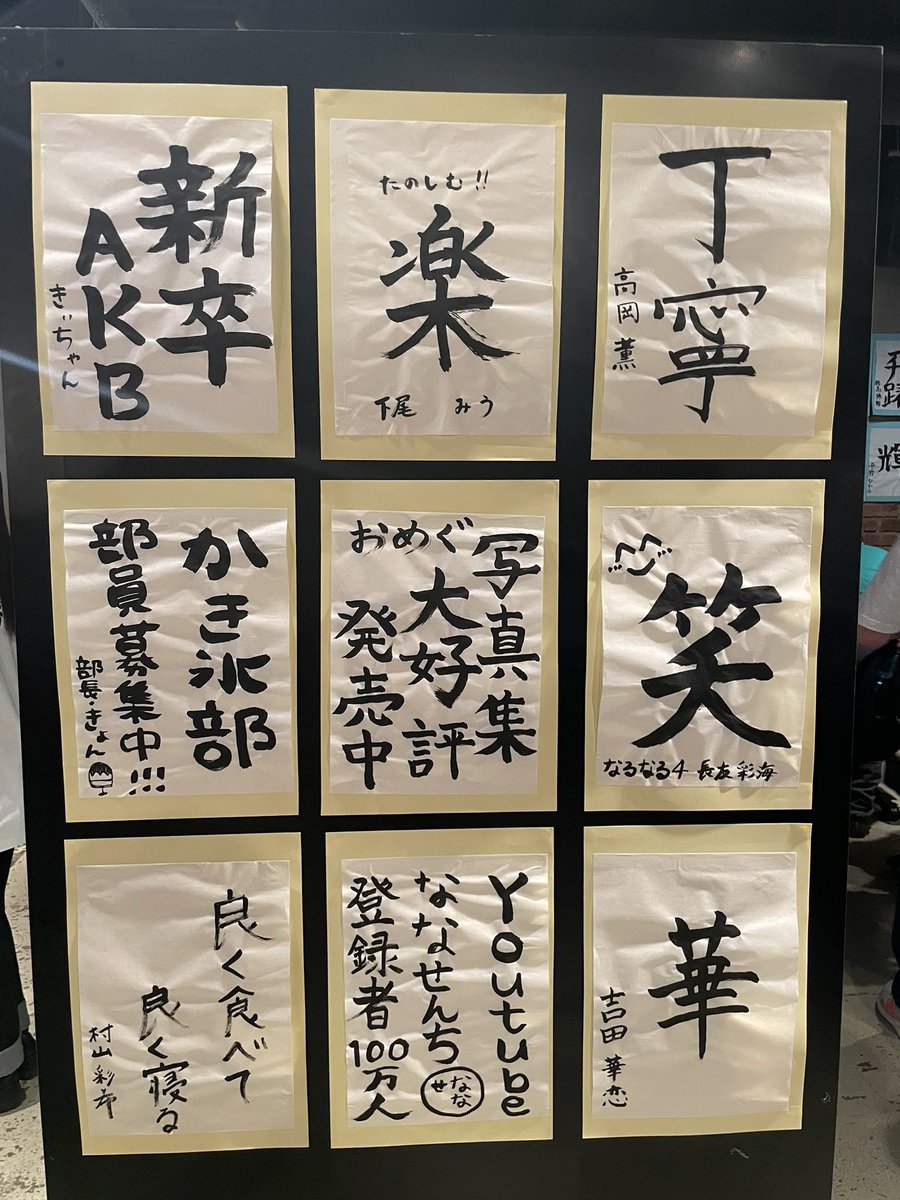 新卒
AKB
きぃちゃん
たのしむ!!
楽
下尾 みう
丁寧
高岡 薫
かき氷部
部員募集中!!!
部長・きょん
おめぐ
写真集
大好評
発売中
笑
なるなる4 長友彩海
良く食べて
良く寝る
村山彩希
Youtube
ななせんち
ななせ
登録者100万人
華
吉田 華恋
輝